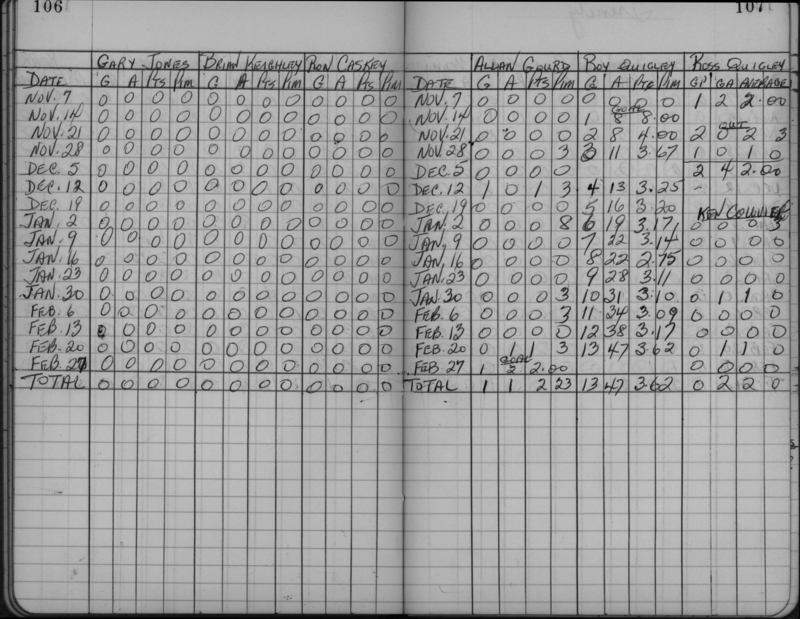 106
GARY JONES BRIAN KEACHLEY RON CASKEY
DATE G A Pts Pim G A Pts Pim G A Pts Pim
NOV. 7 0 0 0 0 0 0 0 0 0 0 0 0
NOV. 14 0 0 0 0 0 0 0 0 0 0 0 0
NOV. 21 0 0 0 0 0 0 0 0 0 0 0 0
NOV. 28 0 0 0 0 0 0 0 0 0 0 0 0
DEC. 5 0 0 0 0 0 0 0 0 0 0 0 0
DEC. 12 0 0 0 0 0 0 0 0 0 0 0 0
DEC. 19 0 0 0 0 0 0 0 0 0 0 0 0
JAN. 2 0 0 0 0 0 0 0 0 0 0 0 0
JAN. 9 0 0 0 0 0 0 0 0 0 0 0 0
JAN. 16 0 0 0 0 0 0 0 0 0 0 0 0
JAN. 23 0 0 0 0 0 0 0 0 0 0 0 0
JAN. 30 0 0 0 0 0 0 0 0 0 0 0 0
FEB. 6 0 0 0 0 0 0 0 0 0 0 0 0
FEB. 13 0 0 0 0 0 0 0 0 0 0 0 0
FEB. 20 0 0 0 0 0 0 0 0 0 0 0 0
FEB. 27 0 0 0 0 0 0 0 0 0 0 0 0
TOTAL 0 0 0 0 0 0 0 0 0 0 0 0
107
ALLAN GOURD ROY QUIGLEY ROSS QUIGLEY
DATE G A Pts Pim G A Pts Pim GP GA AVERAGE
NOV. 7 0 0 0 0 0 0 0 0 1 2 2.00
GOAL
NOV. 14 0 0 0 0 1 8 8.00
OUT
NOV. 21 0 0 0 0 2 8 4.00 2 0 2 3
NOV. 28 0 0 0 3 3 11 3.67 1 0 1 0
DEC. 5 0 0 0 0 2 4 2.00
DEC. 12 1 0 1 3 4 13 3.25 -
DEC. 19 0 0 0 0 5 16 3.20 KEN
JAN. 2 0 0 0 8 6 19 3.17 0 0 0 3
JAN. 9 0 0 0 0 7 22 3.14 0 0 0 0
JAN. 16 0 0 0 0 8 22 2.75 0 0 0 0
JAN. 23 0 0 0 0 9 28 3.11 0 0 0 0
JAN. 30 0 0 0 3 10 31 3.10 0 1 1 0
FEB. 6 0 0 0 3 11 34 3.09 0 0 0 0
FEB. 13 0 0 0 0 12 38 3.17 0 0 0 0
FEB. 20 0 1 1 3 13 47 3.62 0 1 1 0
GOAL
FEB. 27 1 2 2.00 0 0 0 0
TOTAL 1 1 2 23 13 47 3.62 0 2 2 0